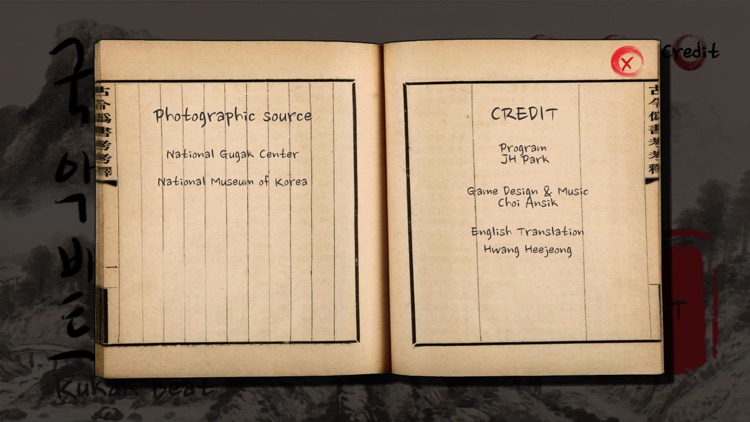 Credit
국
악
비
트
Kukak Beat
古今僞書考考釋
Photographic source
National Gugak Center
National Museum of Korea
CREDIT
Program
JH Park
Game Design & Music
Choi Ansik
English Translation
Hwang Heejeong
古今僞書考考釋
X
T